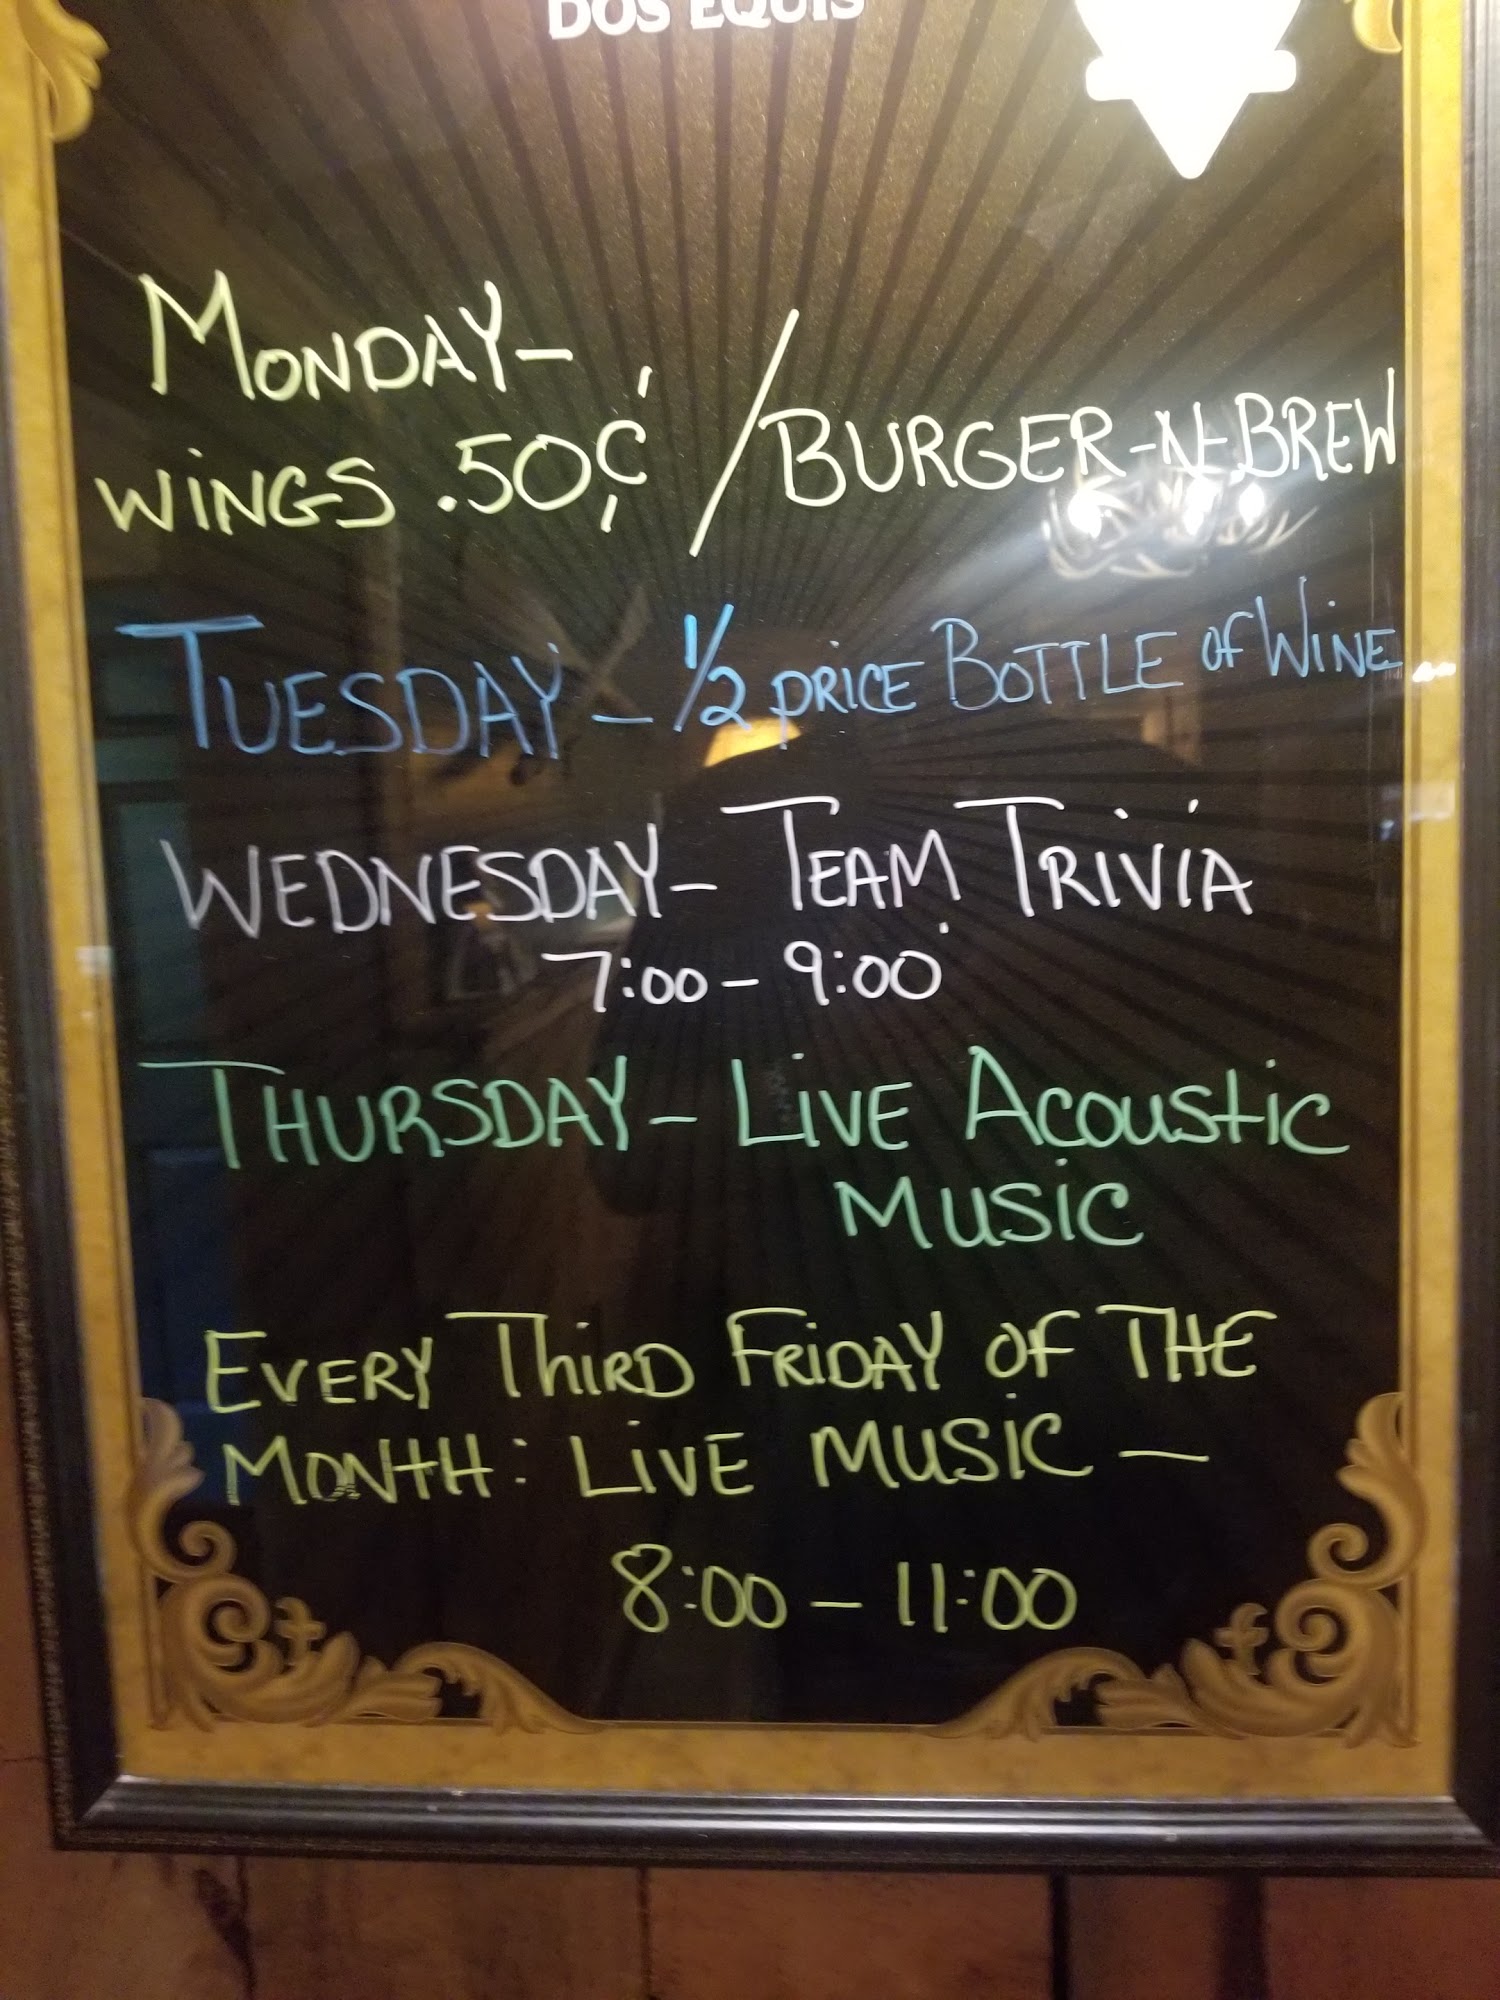 DOS EQUIS
MONDAY-
WINGS .50¢ / BURGER-N-BREW
TUESDAY - 1/2 PRICE BOTTLE OF WINE
WEDNESDAY- TEAM TRIVIA
7:00 - 9:00
THURSDAY- LIVE ACOUSTIC
MUSIC
EVERY THIRD FRIDAY OF THE
MONTH: LIVE MUSIC -
8:00 - 11:00